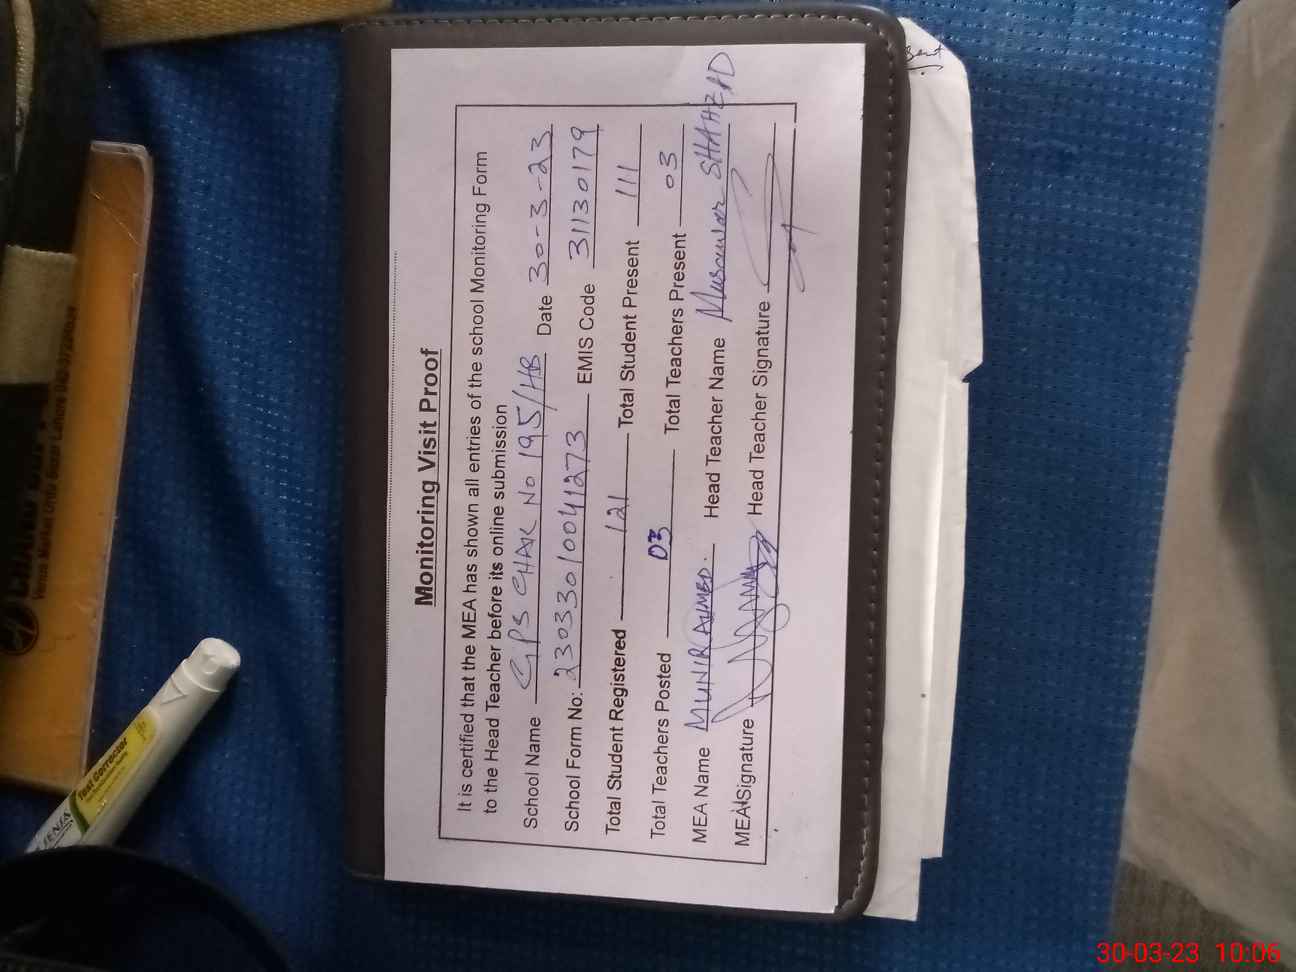 Monitoring Visit Proof
It is certified that the MEA has shown all entries of the school Monitoring Form
to the Head Teacher before its online submission
School Name GPS CHAK NO 195/HB Date 30-3-23
School Form No: 23033010041273 EMIS Code 31130179
Total Student Registered 121 Total Student Present 111
Total Teachers Posted 03 Total Teachers Present 03
MEA Name MUNIR AHMED. Head Teacher Name SHAHZAD
MEA Signature Head Teacher Signature
Text Corrector
30-03-23 10:06